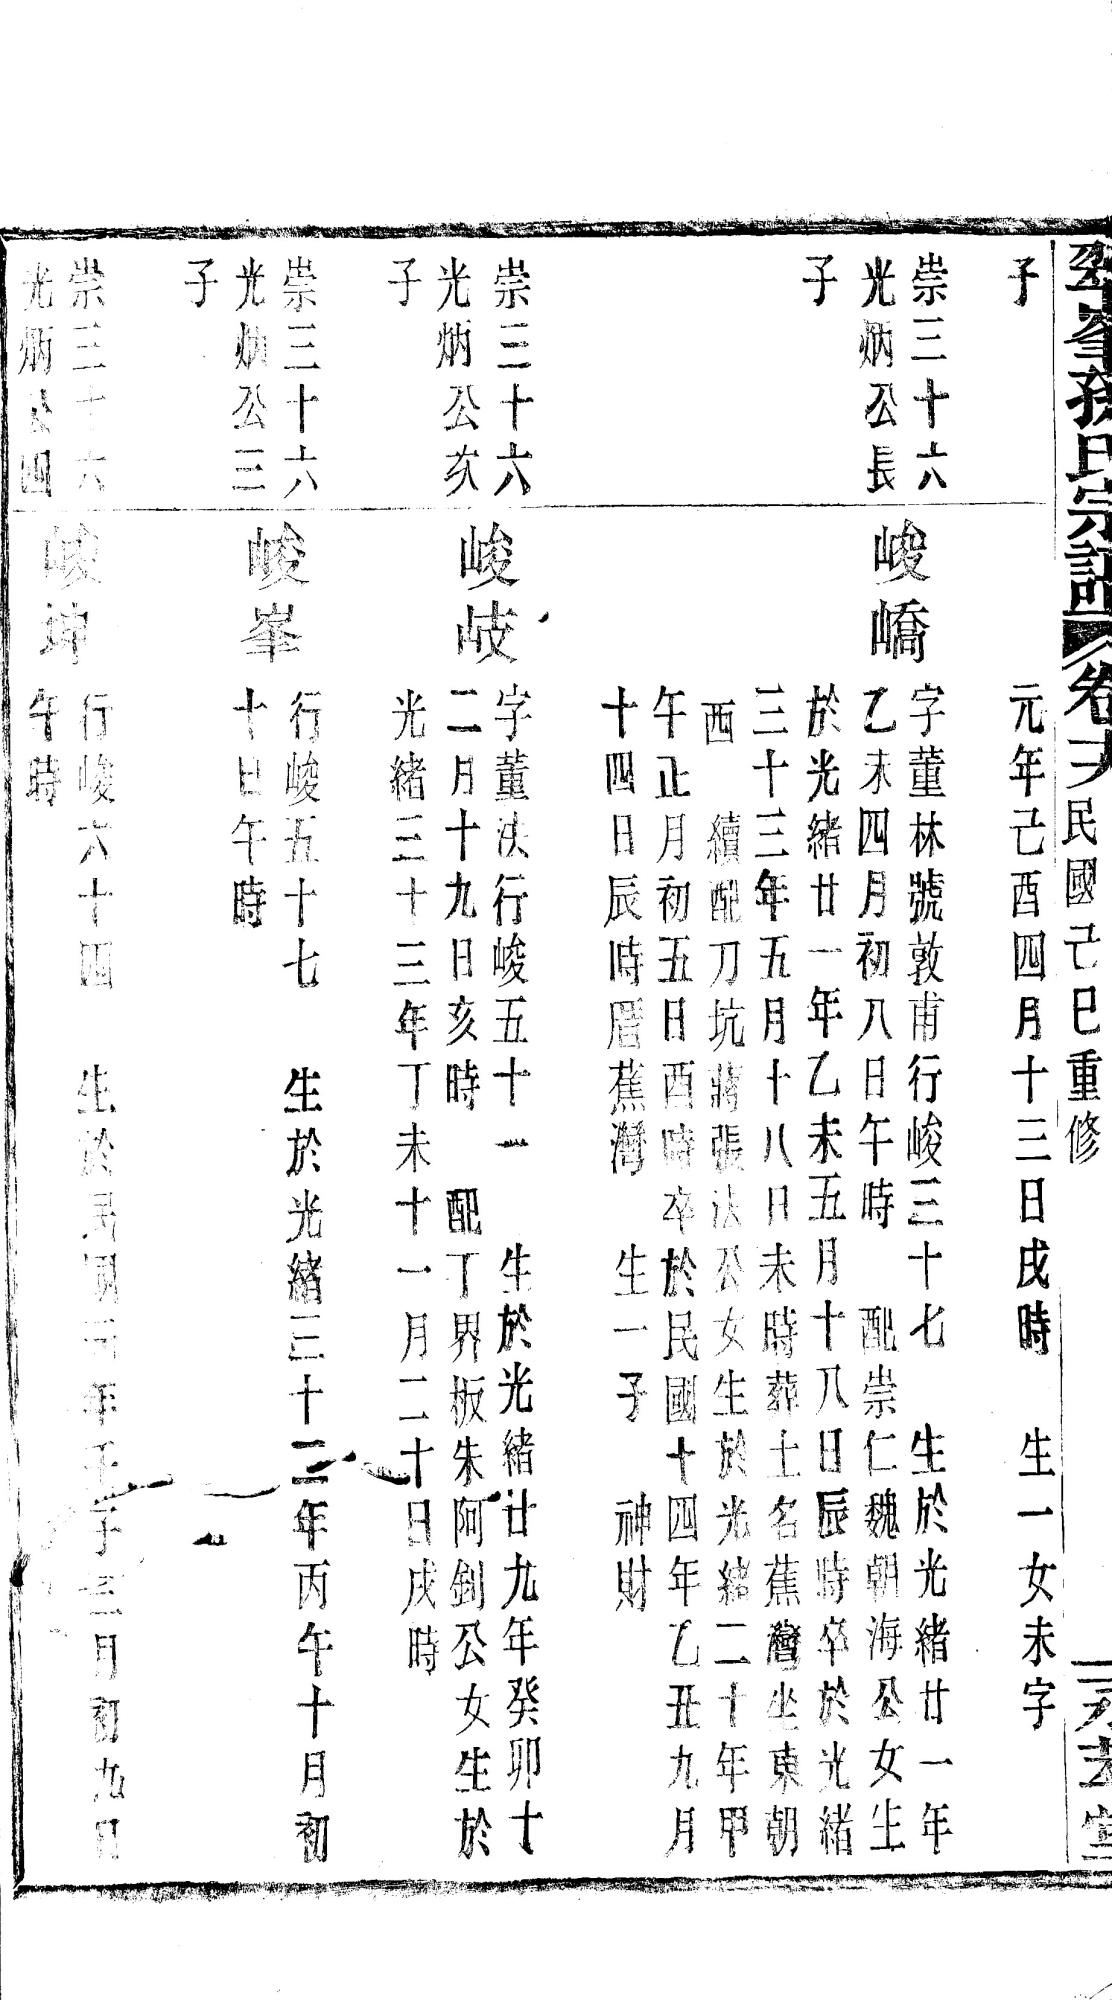 峯孫氏宗譜 卷 民國己巳重修 堂
子
元年己酉四月十三日戌時 生一女未字
崇三十六
光炳公長
子
峻嶠
字董林號敦甫行峻三十七 生於光緒廿一年
乙未四月初八日午時 配崇仁魏朝海公女生
於光緒廿一年乙未五月十八日辰時卒於光緒
三十三年五月十八日未時葬土名蕉灣坐東朝
西 續配刀坑蔣張法公女生於光緒二十年甲
午正月初五日酉時卒於民國十四年乙丑九月
十四日辰時厝蕉灣 生一子 神財
崇三十六
光炳公次
子
峻岐
字董法行峻五十一 生於光緒廿九年癸卯十
二月十九日亥時 配丁界板朱阿釗公女生於
光緒三十三年丁未十一月二十日戌時
崇三十六
光炳公三
子
峻峯
行峻五十七 生於光緒三十二年丙午十月初
十日午時
崇三十六
光炳公四
峻坤
行峻六十四 生於民國元年壬子三月初九日
午時